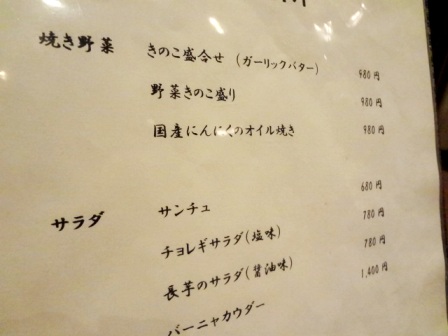 焼き野菜 きのこ盛合せ (ガーリックバター) 980円
野菜きのこ盛り 980円
国産にんにくのオイル焼き 980円
サラダ サンチュ 680円
チョレギサラダ(塩味) 780円
長芋のサラダ(醤油味) 780円
バーニャカウダー 1,400円